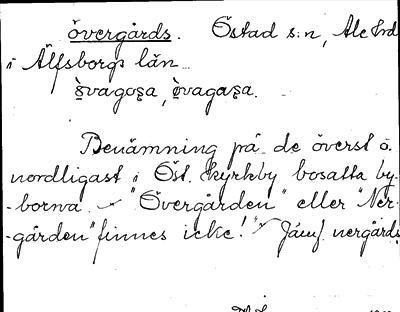 övergårds. Östad s:n, Ale hd
i Älfsborgs län
Benämning på de överst o.
nordligast i Öst. kyrkby bosatta by-
-borna. "Övergården" eller "Ner-
-gården" finnes icke! Jämf. nergårds